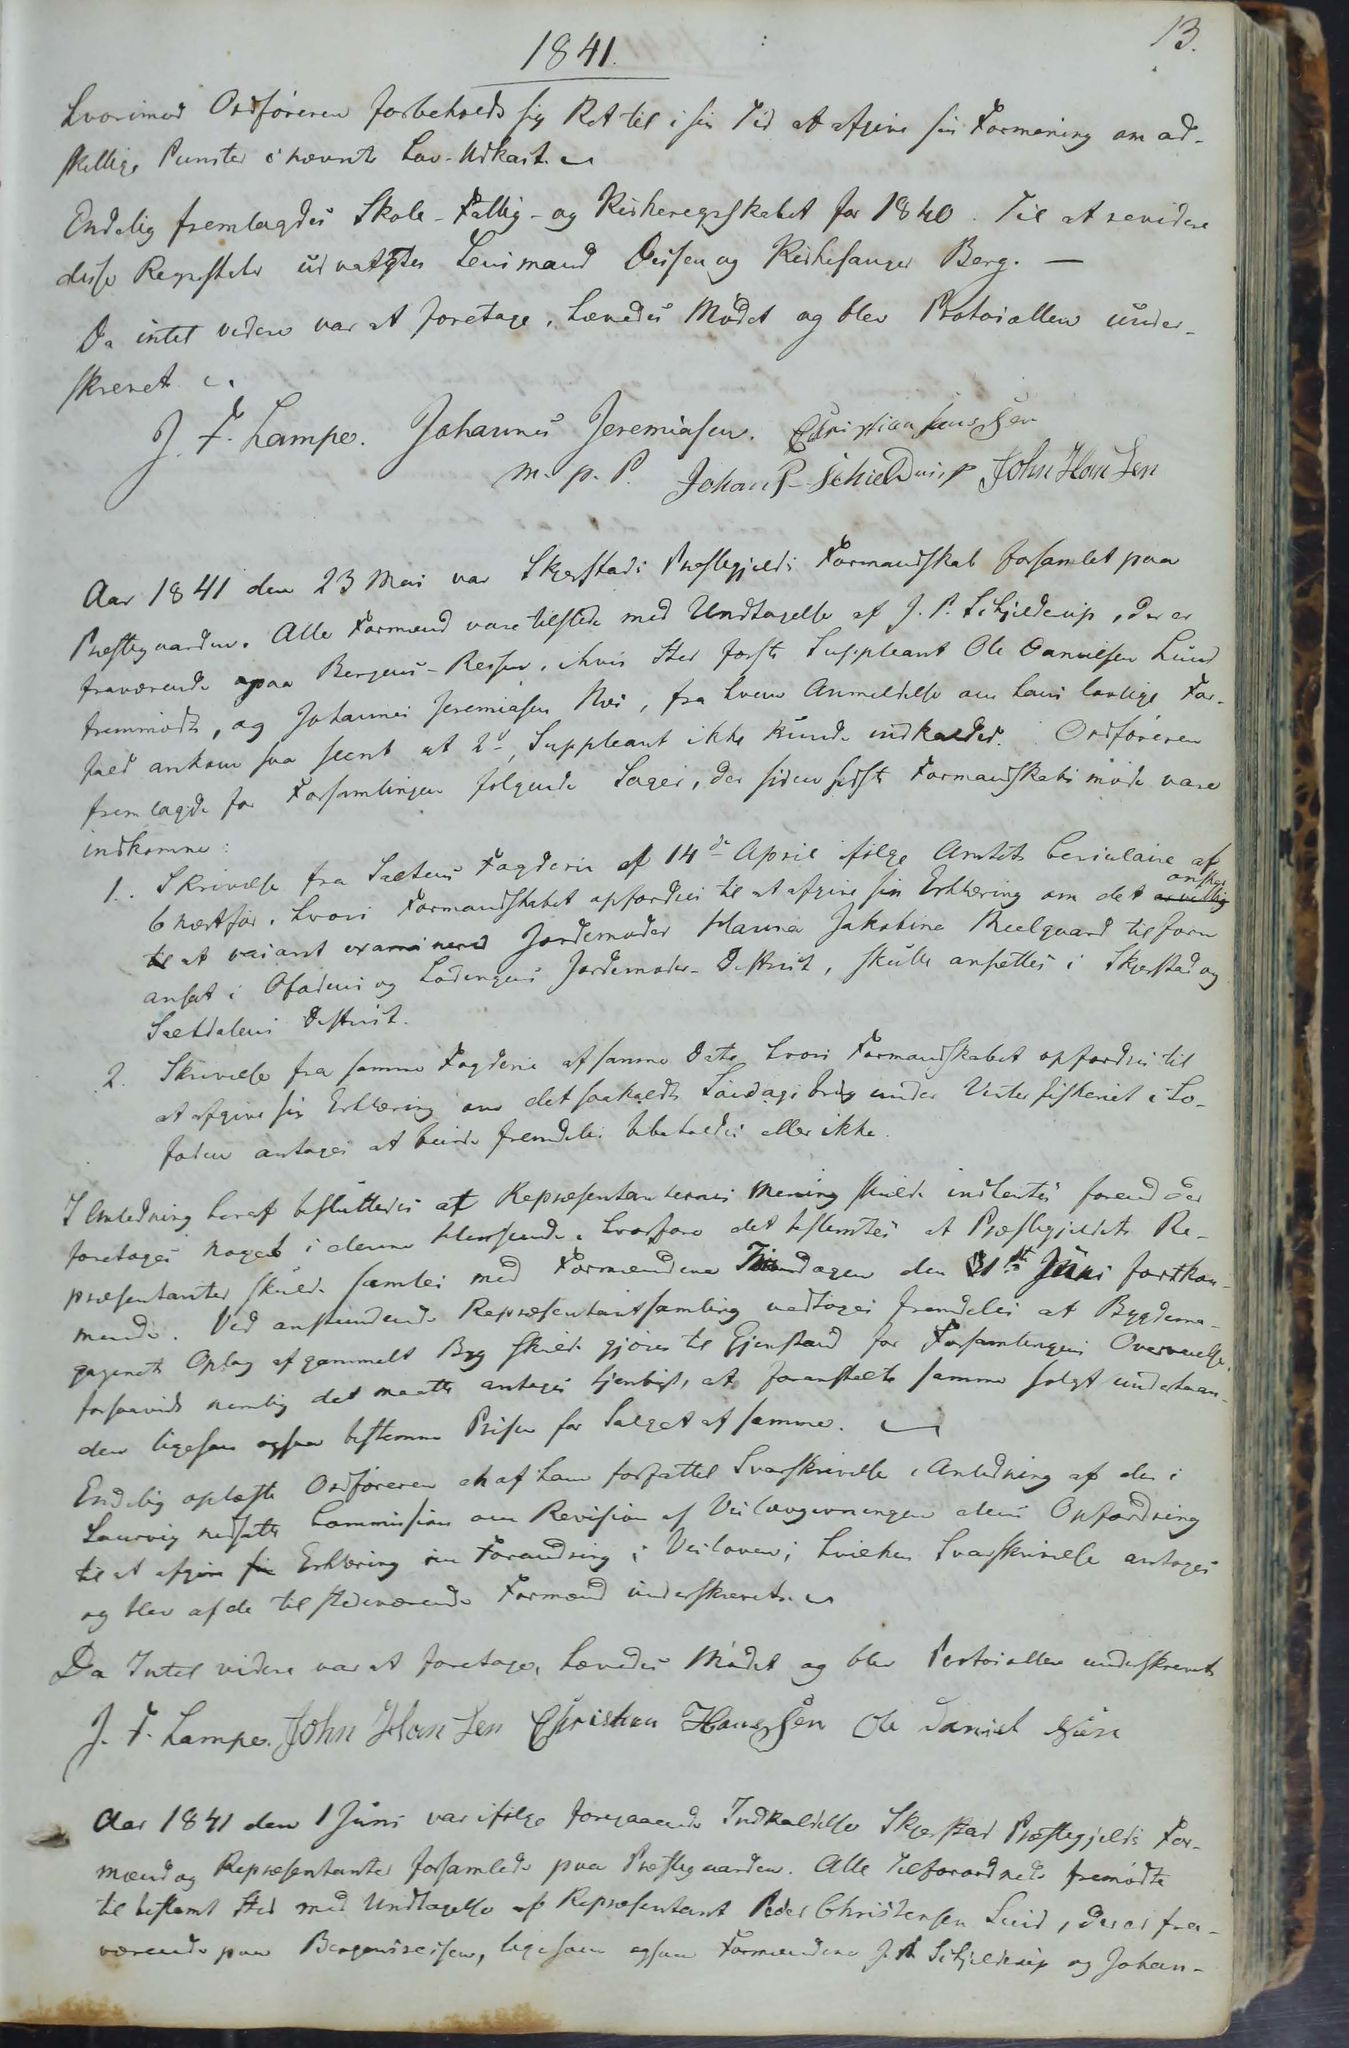 13.
1841.
hvorimod Ordføreren forbeholdt sig Ret til i sin Tid at afgive sin Formening om ad-
skillige Puncter i nævnte Lov-Udkast.
Endelig fremlagdes Skole- Fattig- og Kirkeregnskabet for 1840. Til at revidere
disse Regnskaber udvalgtes Lensmand Ovesen og Kirkesanger Berg. —
Da intet videre var at foretage, hævedes Mødet og blev Protocollen under-
skrevet.
J. F. Lampe. Johannes Jeremiasen. Christian Hanssen
m. p. P. Johan P. Schieldrup John Han Sen
Aar 1841 den 23 Mai var Skjerstads Præstegjelds Formandskab forsamlet paa
Præstegaarden. Alle Formænd vare tilstede med Undtagelse af J. P. Schjelderup, der er
fraværende paa Bergens-Reisen, i hvis Sted første Suppleant Ole Danielsen Lund
fremmødte, og Johannes Jeremiasen Næs, fra hvem Anmeldelse om hans lovlige For-
fald ankom saa seent at 2den Suppleant ikke kunde indkaldes. Ordføreren
fremlagde for Forsamlingen følgende Sager, der siden sidste Formandskabsmøde vare
indkomne:
1. Skrivelse fra Saltens Fogderie af 14de April ifølge Amtets Circulaire af
6 næstfør, hvori Formandskabet opfordres til at afgive sin Erklæring om det
at vacant examineret Jordemoder Hanna Jakobine Beelgaard tilforn
ansat i Ofodens og Lødingens Jordemoder-District, skulle ansættes i Skjerstad og
Saltdalens District.
2. Skrivelse fra samme Fogderie af samme Dato hvori Formandskabet opfordres til
at afgive sin Erklæring om det saakaldte Løverdags brug under Vinterfiskeriet i Lo-
foden antages at burde fremdeles bibeholdes eller ikke.
I Anledning heraf besluttedes at Repræsentanternes Mening skulde indhentes forend der
foretages noget i denne Henseende, hvorfore det bestemtes at Præstegjeldets Re-
præsentanter skulde samles med Formændene dagen den 1ste Juni førstkom-
mende. Ved anstundende Repræsentantsamling vedtoges fremdeles at Bygdema-
gazinets Oplag af gammelt Byg skulde gjøres til Gjenstand for Forsamlingens Overveielse,
forsaavidt nemlig det maatte antages tjenligt, at foranstalte samme solgt underhaan-
den ligesom ogsaa bestemme Prisen for Salget af samme.
Endelig oplæste Ordføreren en af ham forfattet Svarskrivelse i Anledning af den i
Laurvig nedsatte Commission om Revision af Veilovgivningen dens Opfordring
til at afgive sin Erklæring om Forandring i Veiloven; hvilken Svarskrivelse antoges
og blev af de tilstedeværende Formænd underskrevet.
Da Intet videre var at foretage, hævedes Mødet og blev Protocollen underskrevet
J. F. Lampe. John Han Sen Christian Hanssen Ole Daniel
Aar 1841 den 1 Juni var ifølge foregaaende Indkaldelse Skjerstad Præstegjelds For-
mænd og Repræsentanter forsamlede paa Præstegaarden. Alle Tilforordnede fremødte
til bestemt Sted med Undtagelse af Repræsentant Peder Christensen Lund, der er fra-
værende paa Bergensreisen, ligesom ogsaa Formændene J. P. Schjelderup og Johan-